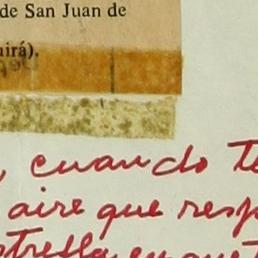 de San Juan de
uirá).
, cuando te
aire que resp
strella en que t